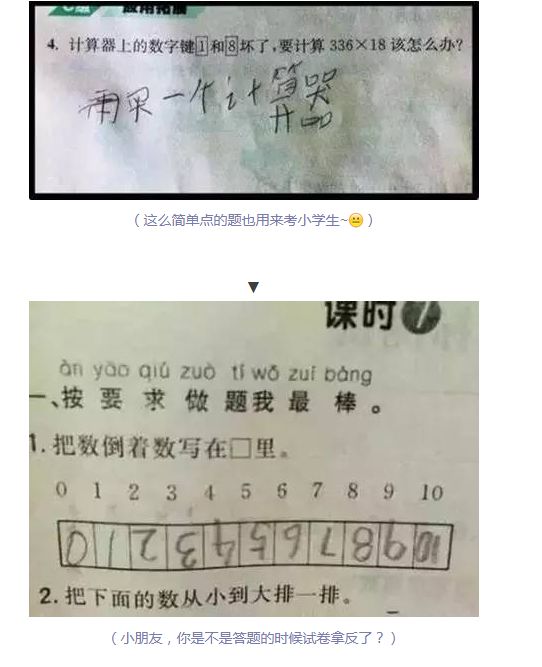 C组 应用拓展
4. 计算器上的数字键1和8坏了,要计算 336×18 该怎么办?
一个计算器
（这么简单点的题也用来考小学生~😐）
▼
课时 1
àn yāo qiú zuò tí wǒ zuì bàng
一、按要求做题我最棒。
1. 把数倒着数写在□里。
0 1 2 3 4 5 6 7 8 9 10
0 1 2 3 4 5 6 7 8 9 10
2. 把下面的数从小到大排一排。
（小朋友，你是不是答题的时候试卷拿反了？）